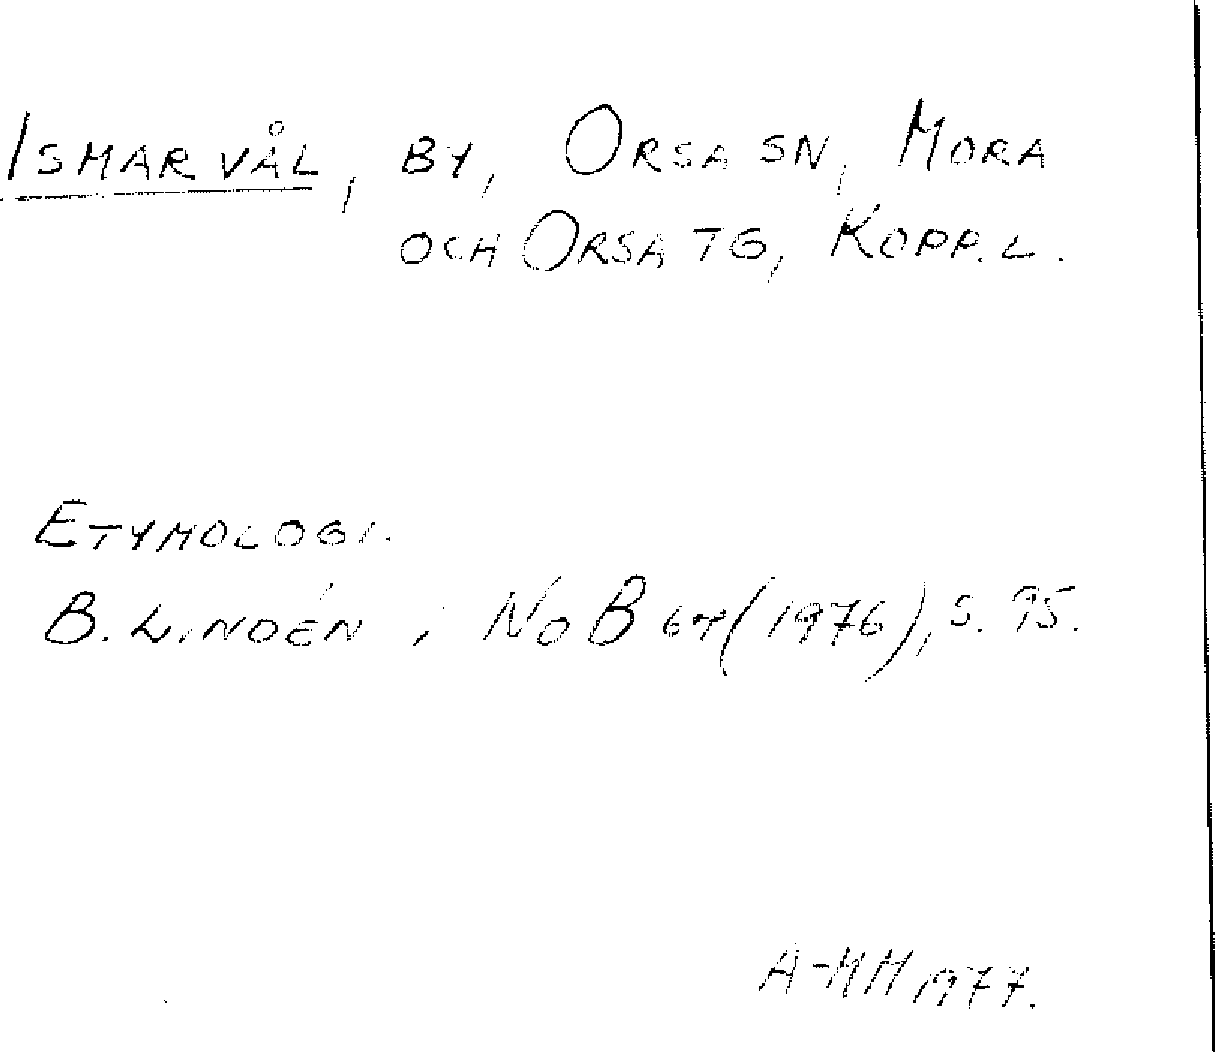 ISMARVÅL, BY, ORSA SN, MORA
OCH ORSA TG, KOPP. L.
ETYMOLOGI.
B. LINDÉN, NoB 64 (1976), S. 95.
A-MH 1977.